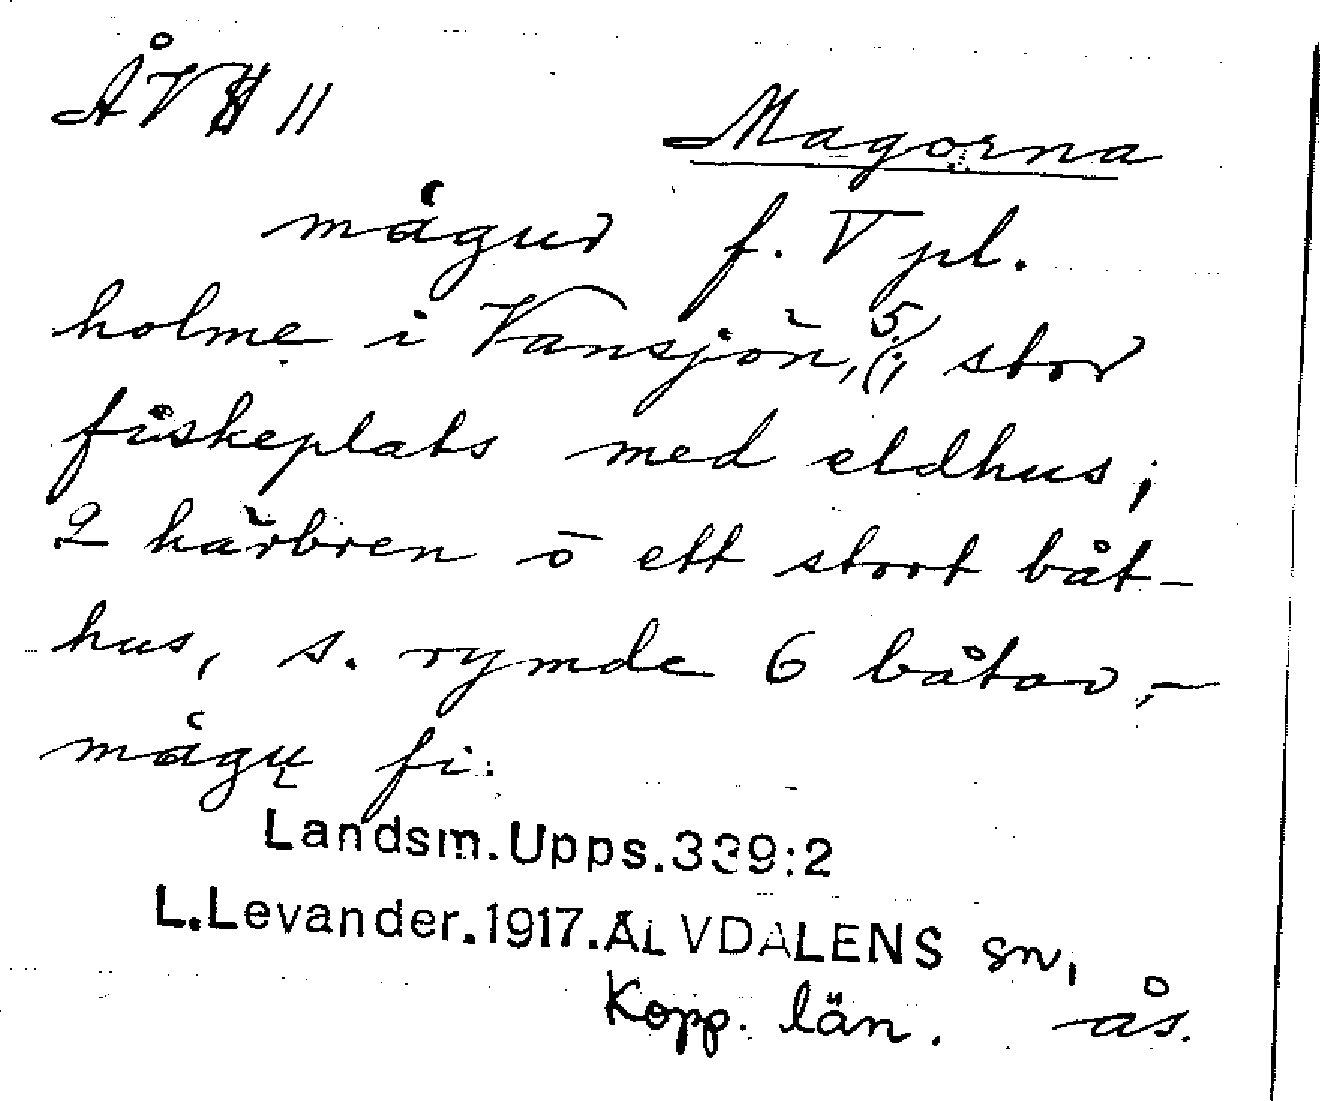 ÅV 11
Magorna
mágur f. V pl.
holme i Vansjön, stor
fiskeplats med eldhus,
2 härbren o ett stort båt-
hus, s. rymde 6 båtar, -
mágų fi.
Landsm.Upps.339:2
L.Levander.1917.ÄLVDALENS sn,
Kopp. län. ås.